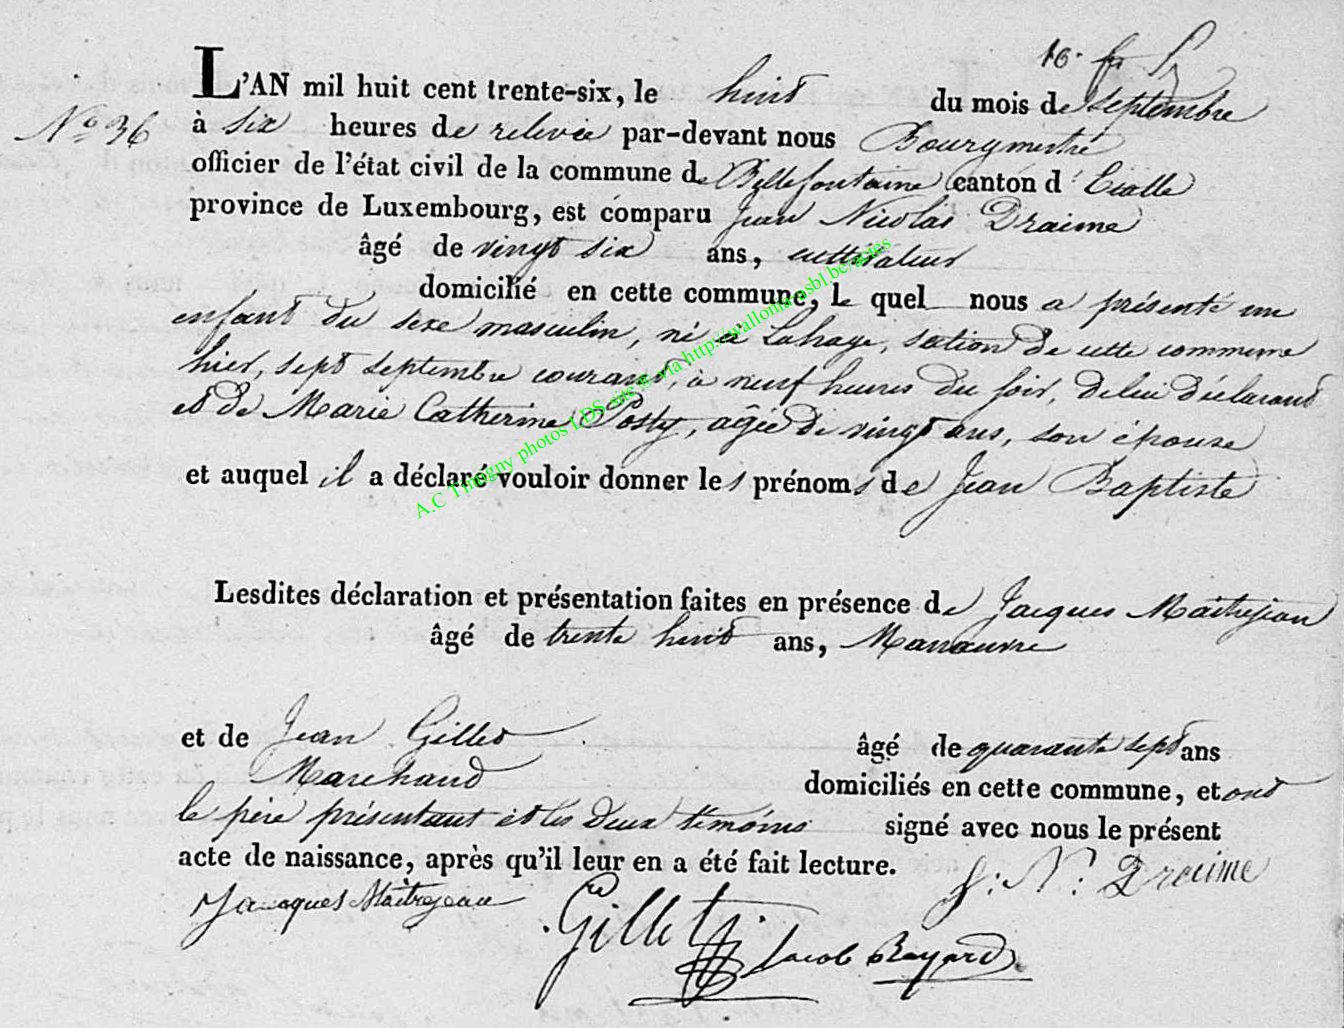 L'AN mil huit cent trente-six, le huit du mois de septembre
N° 36
à six heures de relevée par-devant nous Bourgmestre
officier de l'état civil de la commune de Bellefontaine canton d'Etalle
province de Luxembourg, est comparu Jean Nicolas Draime
âgé de vingt six ans, cultivateur
domicilié en cette commune, le quel nous a présenté un
enfant du sexe masculin, né à Lahage, section de cette commune
hier, sept septembre courant, à neuf heures du soir, de lui déclarant
et de Marie Catherine Posty, agée de vingt ans, son épouse
et auquel il a déclaré vouloir donner les prénoms de Jean Baptiste
Lesdites déclaration et présentation faites en présence de Jacques Maitrejean
âgé de trente huit ans, Manœuvre
et de Jean Gillet âgé de quarante sept ans
Marchand domiciliés en cette commune, et ont
le père présentant et les deux témoins signé avec nous le présent
acte de naissance, après qu'il leur en a été fait lecture.
J: N: Draime
Jacques Maitrejean
Gillet
Jacob Bayard
A.C Timogny photos LDS via http://wallonia.asbl.be/actes